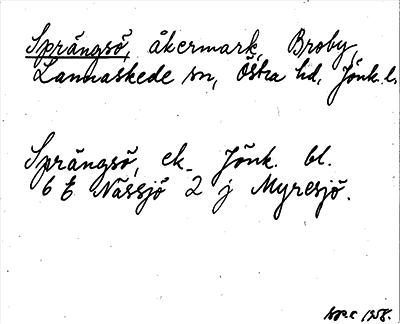 Sprängsö, åkermark, Broby,
Lannaskede sn, Östra hd, Jönk.l.
Sprängsö, ek. Jönk. bl.
6 E Nässjö 2 j Myresjö.